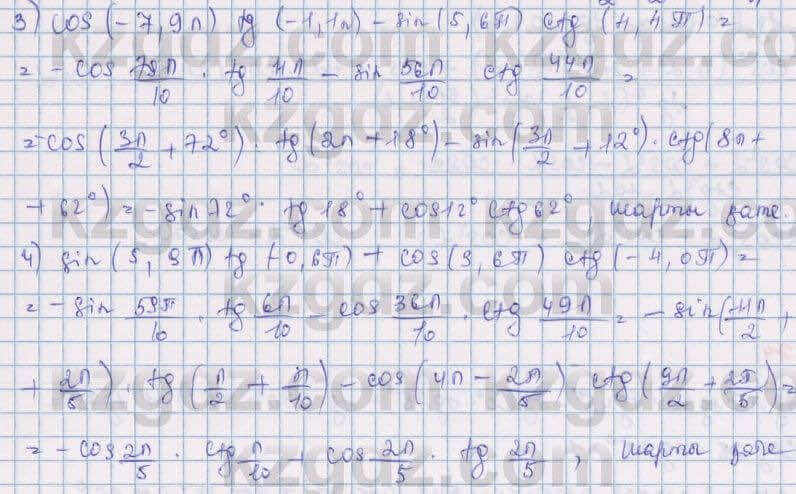 3) cos (-7,9π) tg (-1,1π) - sin (5,6π) ctg (4,4π) =
= -cos 79π/10 · tg 11π/10 - sin 56π/10 ctg 44π/10 =
= -cos (3π/2 + 72°) · tg (2π + 18°) - sin (3π/2 + 12°) · ctg (8π +
+ 62°) = -sin 72° · tg 18° + cos 12° ctg 62°, шарты қате.
4) sin (5,9π) tg (-0,6π) + cos (3,6π) ctg (-4,0π) =
= -sin 59π/10 · tg 6π/10 - cos 36π/10 · ctg 49π/10 = -sin (11π/2 +
+ 2π/5) · tg (π/2 + π/10) - cos (4π - 2π/5) ctg (9π/2 + 2π/5) =
= -cos 2π/5 · ctg π/10 + cos 2π/5 · tg 2π/5, шарты қате
kzgdz.com